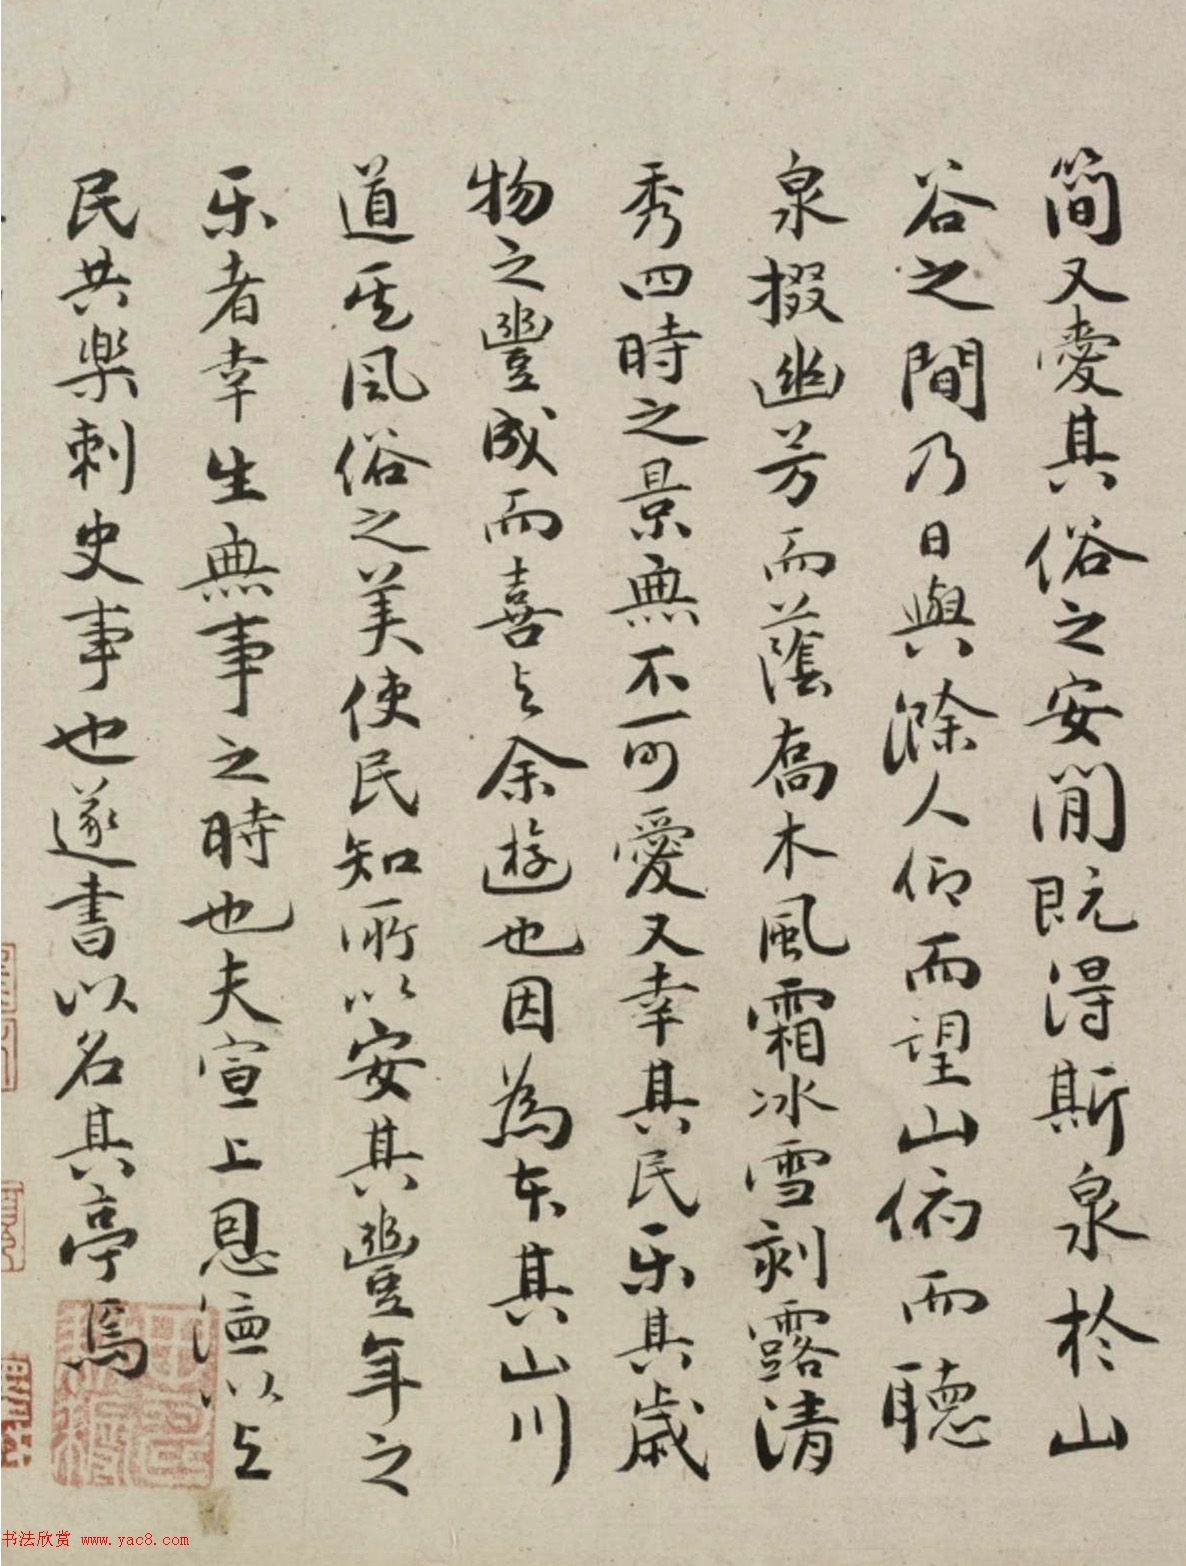 簡又愛其俗之安閒既得斯泉於山
谷之間乃日與滁人仰而望山俯而聽
泉掇幽芳而蔭喬木風霜冰雪刻露清
秀四時之景無不可愛又幸其民乐其歲
物之豐成而喜与余遊也因為本其山川
道其风俗之美使民知所以安其豐年之
乐者幸生無事之時也夫宣上恩德以与
民共樂刺史事也遂書以名其亭焉
书法欣赏 www.yac8.com